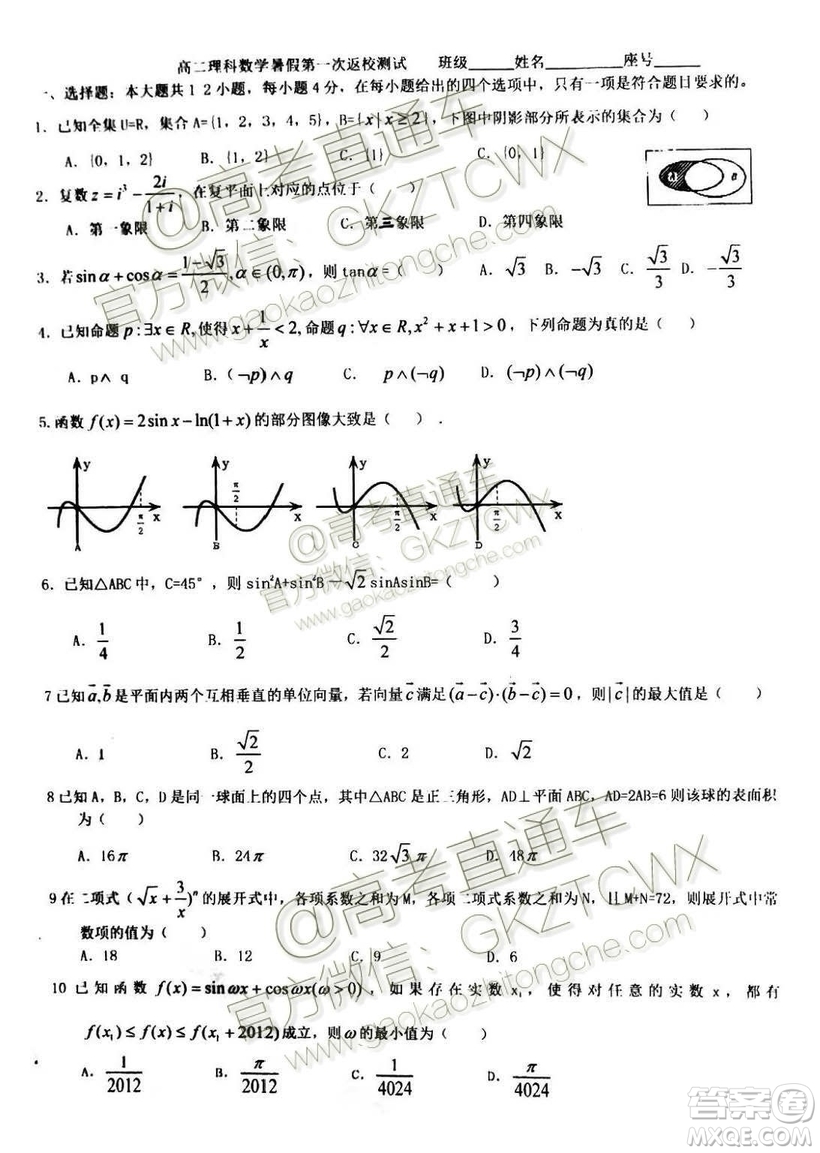 高二理科数学暑假第一次返校测试 班级______姓名__________座号______
一、选择题：本大题共12小题，每小题4分，在每小题给出的四个选项中，只有一项是符合题目要求的。
1. 已知全集U=R，集合A={1，2，3，4，5}，B={x|x≥2}，下图中阴影部分所表示的集合为（ ）
A. {0，1，2} B. {1，2} C. {1} D. {0，1}
2. 复数 z = i³ − 2i/(1+i)，在复平面上对应的点位于（ ）
A. 第一象限 B. 第二象限 C. 第三象限 D. 第四象限
3. 若 sinα + cosα = (1−√3)/2, α∈(0,π)，则 tanα =（ ） A. √3 B. −√3 C. √3/3 D. −√3/3
4. 已知命题 p:∃x∈R,使得 x + 1/x < 2,命题 q:∀x∈R, x² + x + 1 > 0，下列命题为真的是（ ）
A. p∧ q B. (¬p)∧q C. p∧(¬q) D. (¬p)∧(¬q)
5. 函数 f(x) = 2sin x − ln(1+x) 的部分图像大致是（ ）.
y y y y
π/2
x x x x
π/2 π/2 π/2
A B C D
6. 已知△ABC中，C=45°，则 sin²A+sin²B −√2 sinAsinB=（ ）
A. 1/4 B. 1/2 C. √2/2 D. 3/4
7 已知 a⃗,b⃗ 是平面内两个互相垂直的单位向量，若向量 c⃗ 满足 (a⃗−c⃗)·(b⃗−c⃗)=0，则|c⃗|的最大值是（ ）
A. 1 B. √2/2 C. 2 D. √2
8 已知A，B，C，D是同一球面上的四个点，其中△ABC是正三角形，AD⊥平面ABC，AD=2AB=6则该球的表面积
为（ ）
A. 16π B. 24π C. 32√3π D. 48π
9 在二项式（√x + 3/x)ⁿ 的展开式中，各项系数之和为M，各项二项式系数之和为N，且M+N=72，则展开式中常
数项的值为（ ）
A. 18 B. 12 C. 9 D. 6
10 已知函数 f(x)=sinωx+cosωx(ω>0)，如果存在实数 x₁，使得对任意的实数 x，都有
f(x₁)≤f(x)≤f(x₁+2012) 成立，则ω的最小值为（ ）
A. 1/2012 B. π/2012 C. 1/4024 D. π/4024
@高考直通车
官方微信：GKZTCWX
www.gaokaozhitongche.com
@高考直通车
官方微信：GKZTCWX
www.gaokaozhitongche.com
@高考直通车
官方微信：GKZTCWX
www.gaokaozhitongche.com
答案圈
MXQE.COM